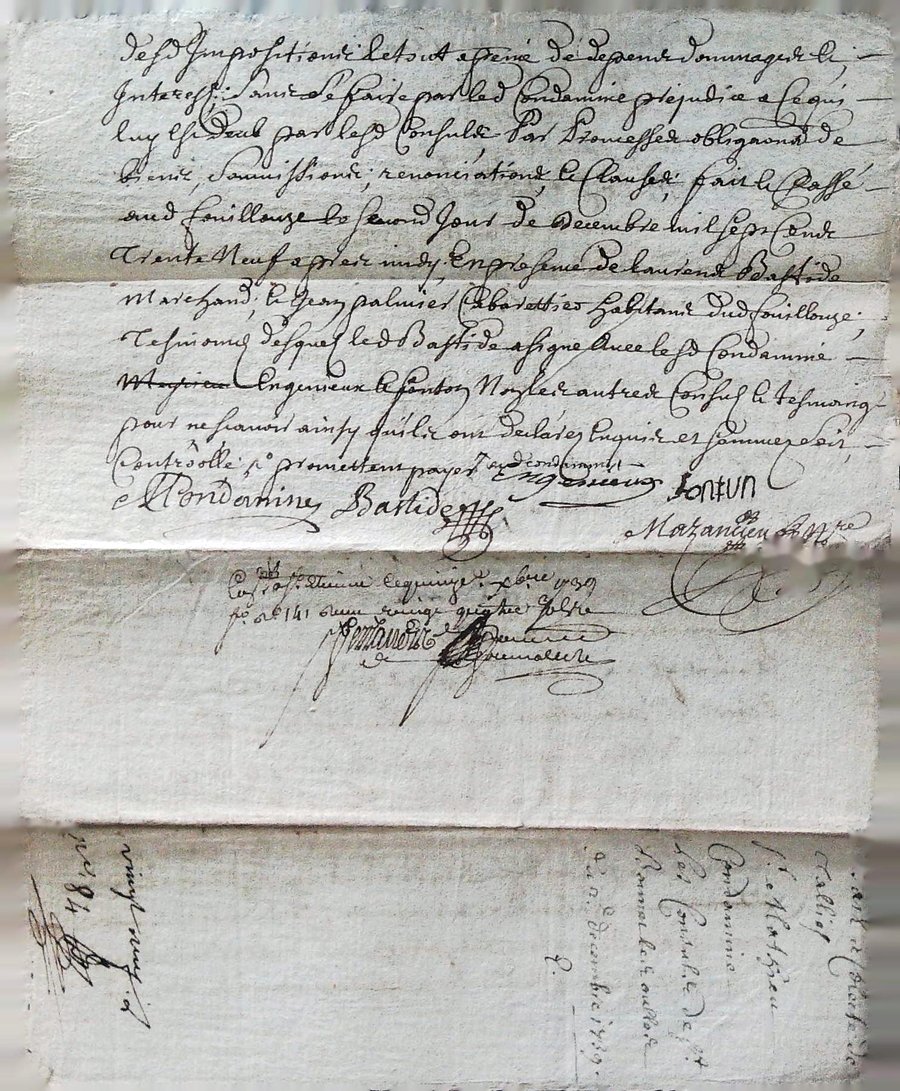 desd Impositions le tout a peine de depens dommages &
Interest; Sans Se faire par led Condamine prejudice a Cequi
luy Est deub par lesd Consuls, Par Promesses obligaons de
biens, Soumissions, renonciations, & Clauses; fait & Passé
aud fouillouze le second Jour de decembre mil sept Cens
Trente Neuf apres midy, En presence de laurens Bastide
Marchand; & Jean palmier Cabarettier habitans dud fouillouze;
Tesmoins desquels led Bastide a signe Avec lesd Condamine
Engenieux & fonton Non les autres Consuls & tesmoing
pour ne scavoir ainsy quils ont declares Enquis et sommes
Controllé promettent payer aud condamine
Condamine Bastide Engenieux fontun
Mazancieu Nre
a St Etienne le quinze xbre 1739
fo 141 douze
vingt neuf
no 84
Tallies
Sr Mathieu
Condamine
Les Consuls de St
Bonnet les oulles
du 2 decembre 1739.